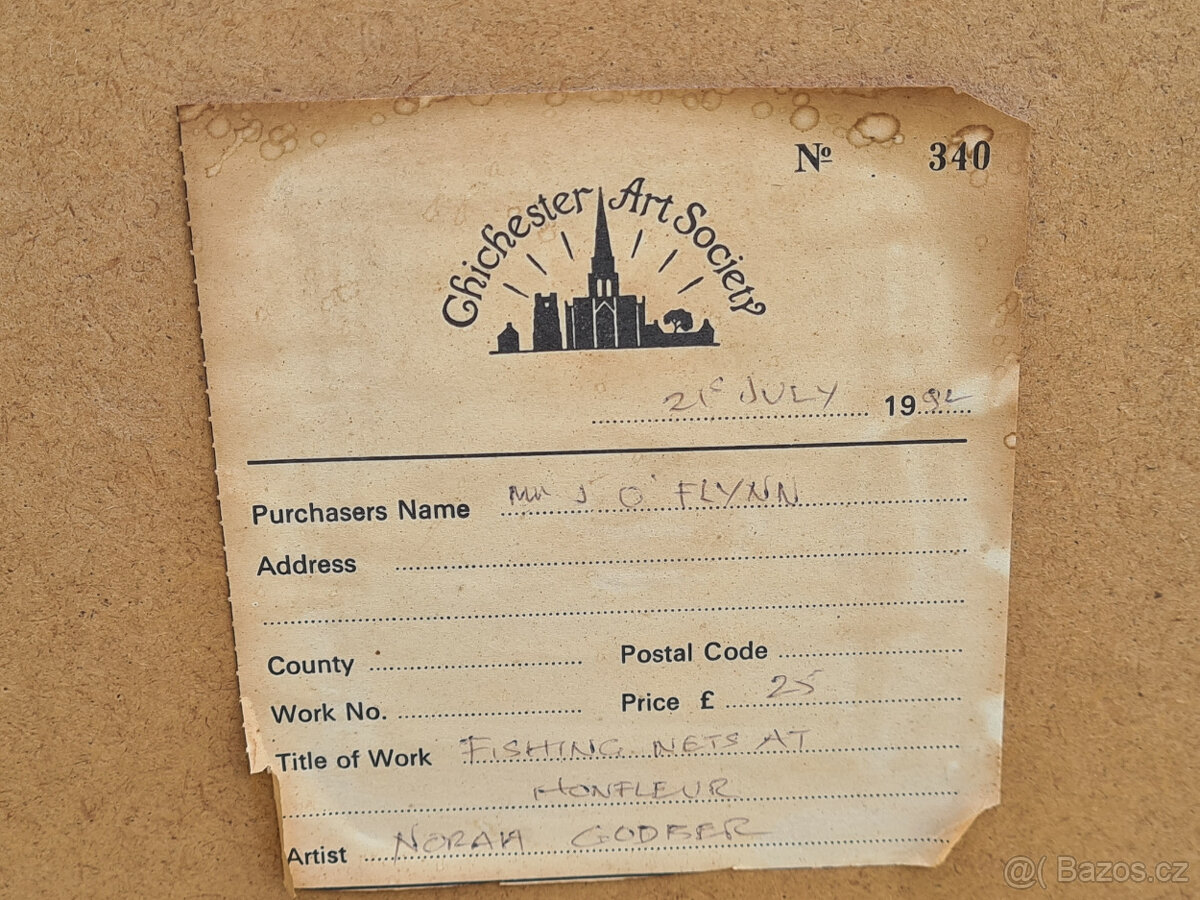 Nº 340
Chichester Art Society
21st JULY 1992
Purchasers Name Mr J O'FLYNN
Address
County Postal Code
Work No. Price £ 25
Title of Work FISHING NETS AT
HONFLEUR
Artist NORAH GODBER
@( Bazos.cz